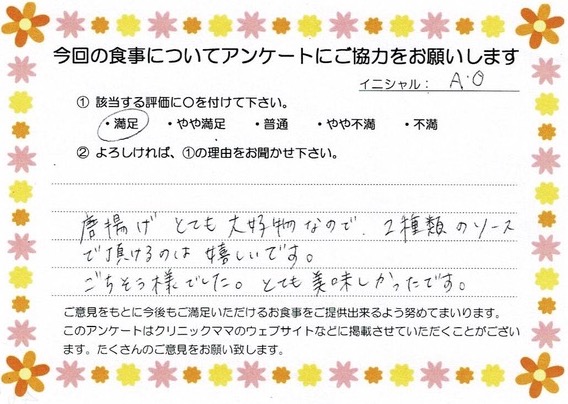 今回の食事についてアンケートにご協力をお願いします
イニシャル： A・O
① 該当する評価に○を付けて下さい。
・満足 ・やや満足 ・普通 ・やや不満 ・不満
② よろしければ、①の理由をお聞かせ下さい。
唐揚げ とても大好物なので、2種類のソース
で頂けるのは嬉しいです。
ごちそう様でした。とても美味しかったです。
ご意見をもとに今後もご満足いただけるお食事をご提供出来るよう努めてまいります。
このアンケートはクリニックママのウェブサイトなどに掲載させていただくことがござい
ます。たくさんのご意見をお願い致します。